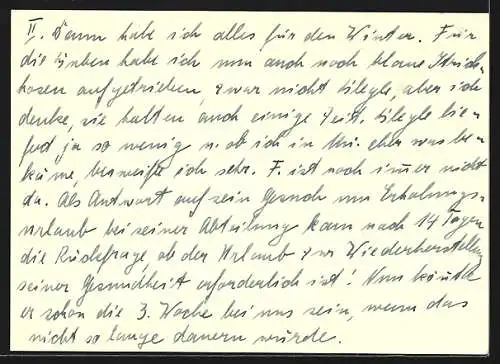 II. Dann habe ich alles für den Winter. Für
die Buben habe ich nun auch noch blaue Strick-
hosen aufgetrieben, zwar nicht Kleyle, aber ich
denke, sie halten auch einige Zeit. Kleyle lie-
fert ja so wenig u. ob ich in Mü. eher was be-
käme, bezweifle ich sehr. F. ist noch immer nicht
da. Als Antwort auf sein Gesuch um Erholungs-
urlaub bei seiner Abteilung kam nach 14 Tagen
die Rückfrage, ob der Urlaub zur Wiederherstellung
seiner Gesundheit erforderlich ist! Nun könnte
er schon die 3. Woche bei uns sein, wenn das
nicht so lange dauern würde.